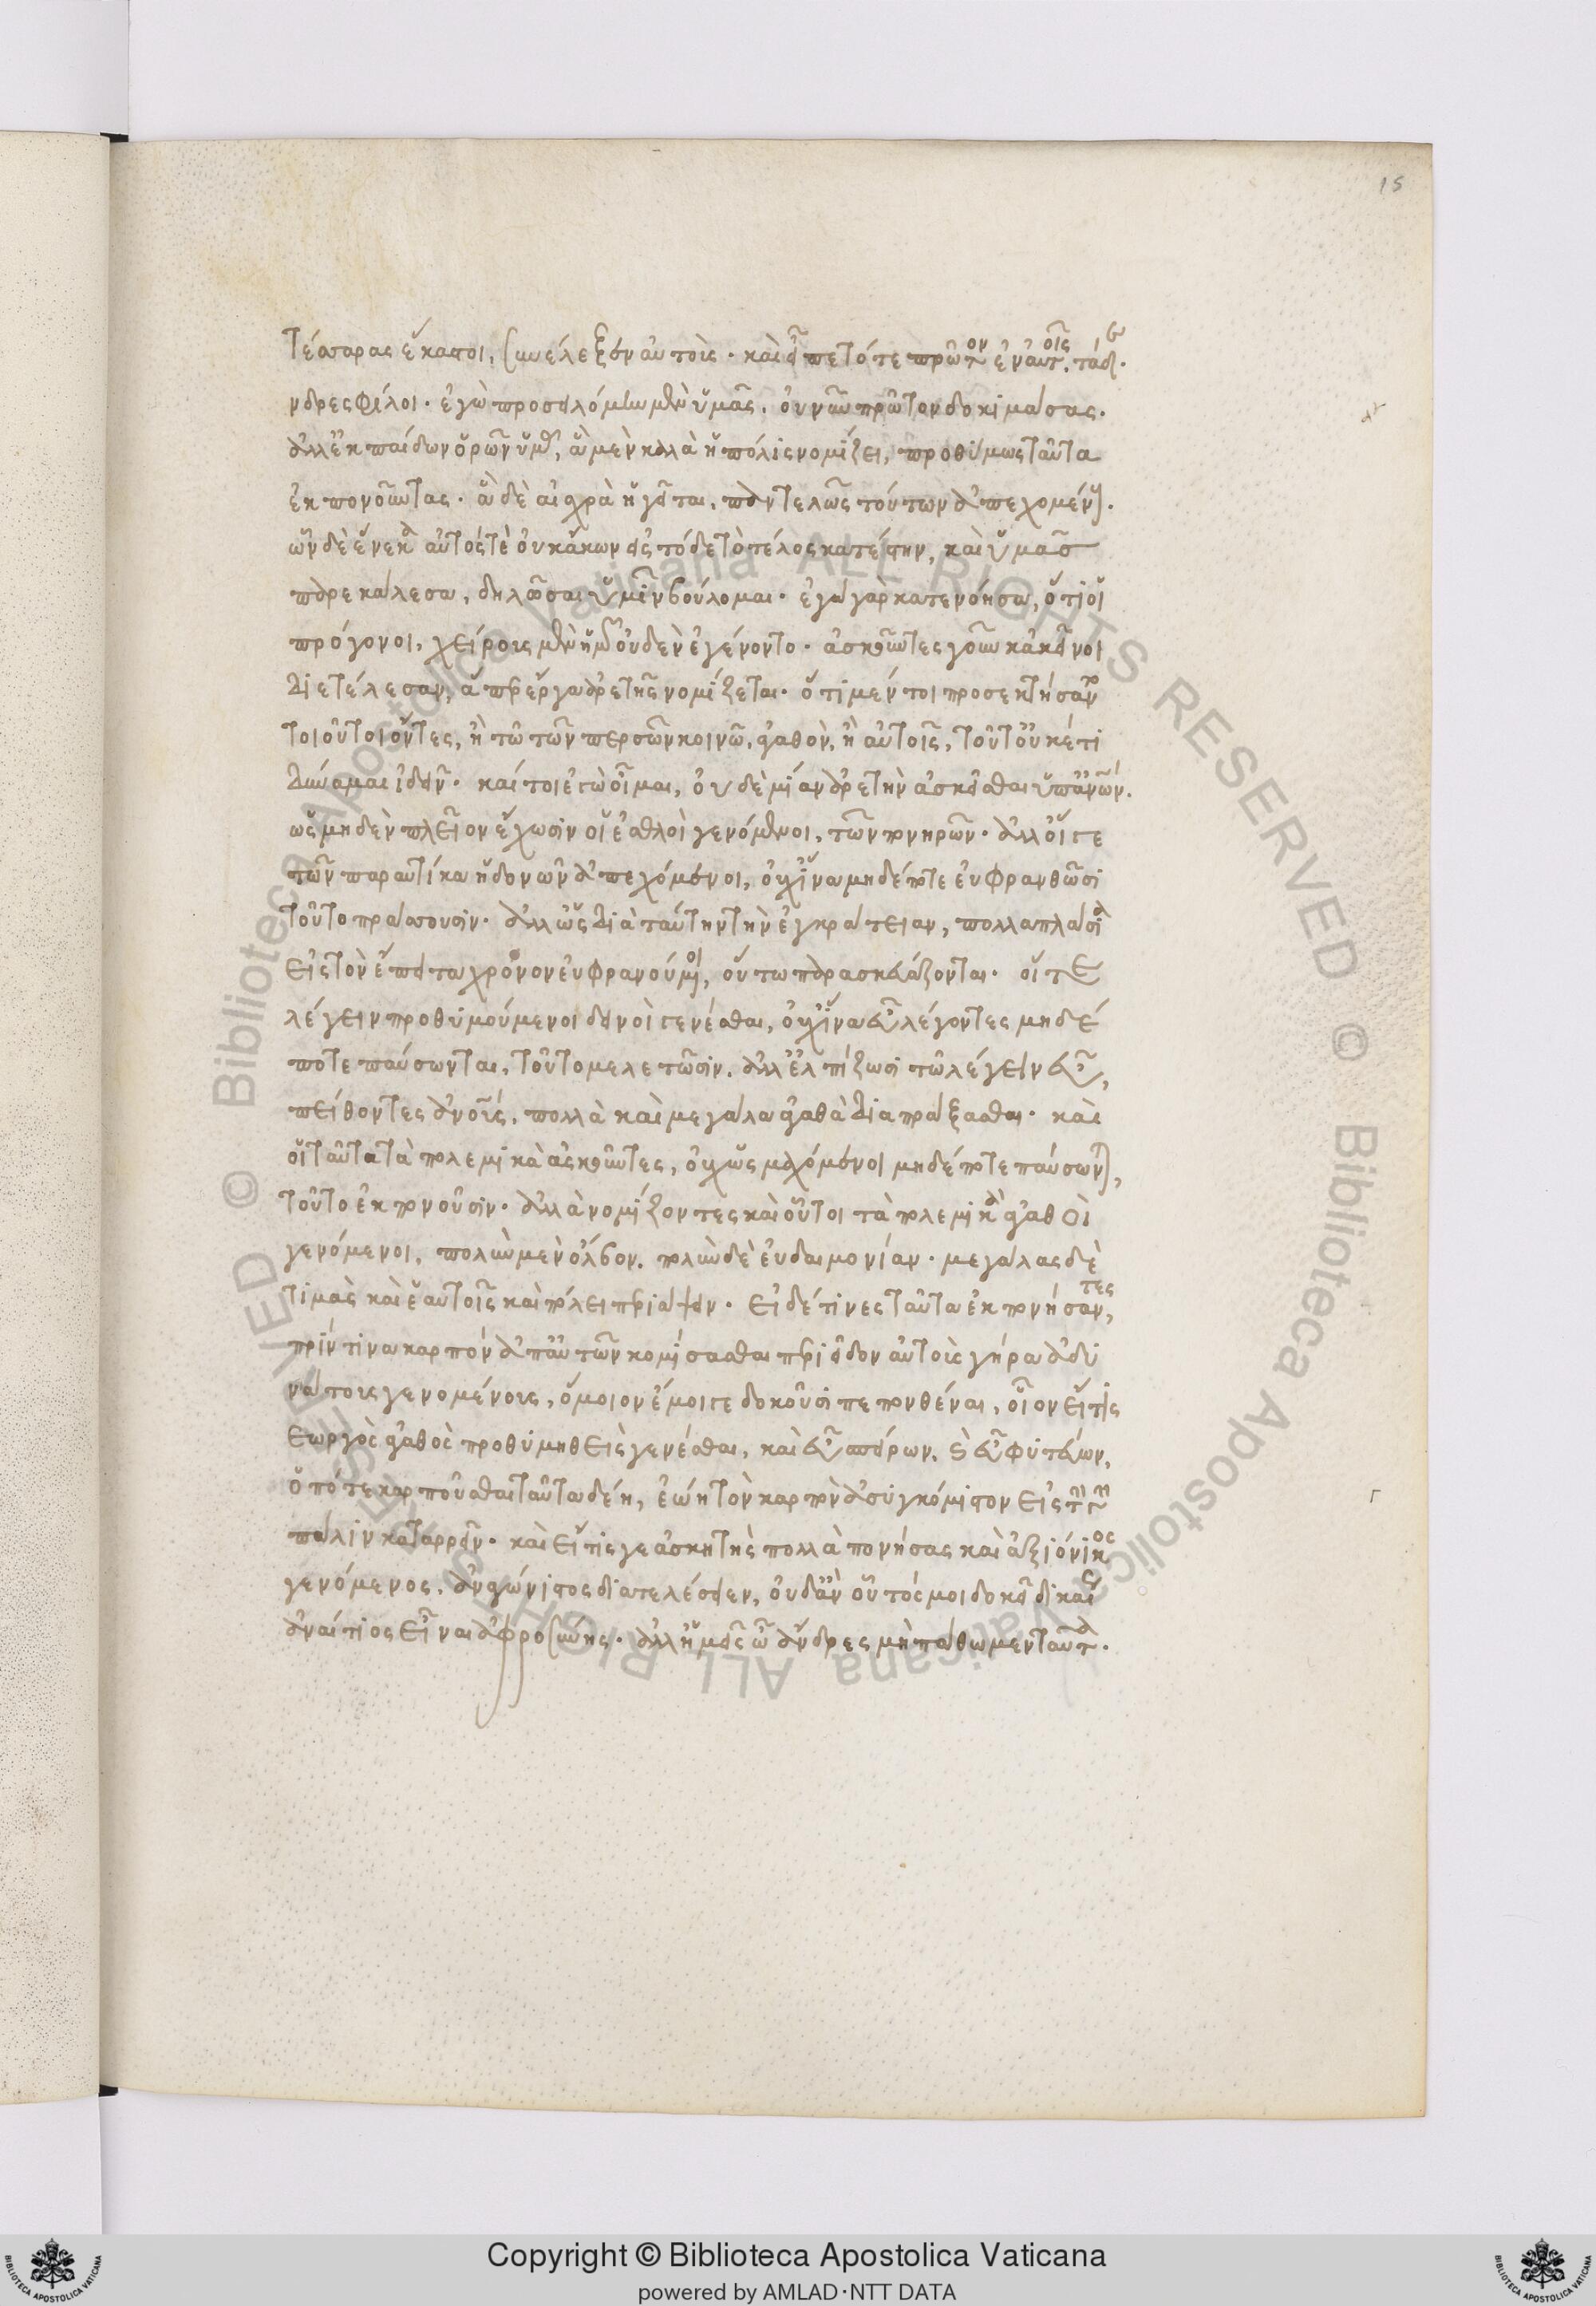 15
τέσσαρας ἕκαστοι, συνέλεξεν αὐτοὺς. καὶ εἶπε τότε πρῶτον ἐν αὐτοῖς. τάδε.
νδρες φίλοι. ἐγὼ προσειλόμην μὲν ὑμᾶς. οὐ νῦν πρῶτον δοκιμάσας.
ἀλλ' ἐκ παίδων ὁρῶν ὑμᾶς, ἃ μὲν καλὰ ἡ πόλις νομίζει, προθύμως ταῦτα
ἐκπονοῦντας. ἃ δὲ αἰσχρὰ ἡγεῖται, παντελῶς τούτων ἀπεχομένους.
ὧν δὲ ἕνεκα αὐτός τε οὐκ ἄκων εἰς τόδε τὸ τέλος κατέστην, καὶ ὑμᾶς
παρεκάλεσα, δηλῶσαι ὑμῖν βούλομαι. ἐγὼ γὰρ κατενόησα, ὅτι οἱ
πρόγονοι, χείρους μὲν ἡμῶν οὐδὲν ἐγένοντο. ἀσκοῦντες γοῦν κἀκεῖνοι
διετέλεσαν, ἅπερ ἔργα ἀρετῆς νομίζεται. ὅτι μέντοι προσεκτήσαντο
τοιοῦτοι ὄντες, ἢ τῷ τῶν περσῶν κοινῷ, ἀγαθὸν, ἢ αὑτοῖς, τοῦτ' οὐκέτι
δύναμαι ἰδεῖν. καίτοι ἐγὼ οἶμαι, οὐδὲ μίαν ἀρετὴν ἀσκεῖσθαι ὑπ' ἀνῶν.
ὡς μηδὲν πλεῖον ἔχωσιν οἱ ἐσθλοὶ γενόμενοι, τῶν πονηρῶν. ἀλλ' οἵ τε
τῶν παραυτίκα ἡδονῶν ἀπεχόμενοι, οὐχ ἵνα μηδέποτε εὐφρανθῶσι
τοῦτο πράσσουσιν. ἀλλ' ὡς διὰ ταύτην τὴν ἐγκράτειαν, πολλαπλάσια
εἰς τὸν ἔπειτα χρόνον εὐφρανούμενοι, οὕτω παρασκευάζονται. οἵ τε
λέγειν προθυμούμενοι δεινοὶ γενέσθαι, οὐχ ἵνα εὖ λέγοντες μηδέ
ποτε παύσωνται, τοῦτο μελετῶσιν. ἀλλ' ἐλπίζωσι τῷ λέγειν εὖ,
πείθοντες ἀνοῖς, πολλὰ καὶ μεγάλα ἀγαθὰ διαπράξασθαι. καὶ
οἱ ταῦτα τὰ πολεμικὰ ἀσκοῦντες, οὐχ ὡς μαχόμενοι μηδέποτε παύσωνται,
τοῦτο ἐκπονοῦσιν. ἀλλὰ νομίζοντες καὶ οὗτοι τὰ πολεμικὰ ἀγαθοὶ
γενόμενοι, πολὺν μὲν ὄλβον. πολὺν δὲ εὐδαιμονίαν. μεγάλας δὲ
τιμὰς καὶ ἑαυτοῖς καὶ πόλει περιάψειν. εἰ δέ τινες ταῦτα ἐκπονήσαντες,
πρίν τινα καρπὸν ἀπ' αὐτῶν κομίσασθαι περιεῖδον αὑτοὺς γήρα ἀδυ
νάτους γενομένους, ὅμοιον ἔμοιγε δοκοῦσι πεπονθέναι, οἷον εἴ τις
εωργὸς ἀγαθὸς προθυμηθεὶς γενέσθαι, καὶ εὖ σπείρων, καὶ εὖ φυτεύων,
ὁπότε καρποῦσθαι ταῦτα δέη, ἐῴη τὸν καρπὸν ἀσυγκόμιστον εἰς τὴν γῆν
πάλιν καταρρεῖν. καὶ εἴ τις γε ἀσκητὴς πολλὰ πονήσας καὶ ἀξιόνικος
γενόμενος, ἀναγώνιστος διατελέσειεν, οὐδ' ἂν οὗτός μοι δοκεῖ δικαίως
ἀναίτιος εἶναι ἀφροσύνης. ἀλλ' ἡμεῖς ὦ ἄνδρες μὴ πάθωμεν ταῦτα.
© Biblioteca Apostolica Vaticana ALL RIGHTS RESERVED © Biblioteca Apostolica Vaticana ALL RIGHTS RESERVED
Copyright © Biblioteca Apostolica Vaticana
powered by AMLAD·NTT DATA
BIBLIOTECA APOSTOLICA VATICANA
BIBLIOTECA APOSTOLICA VATICANA